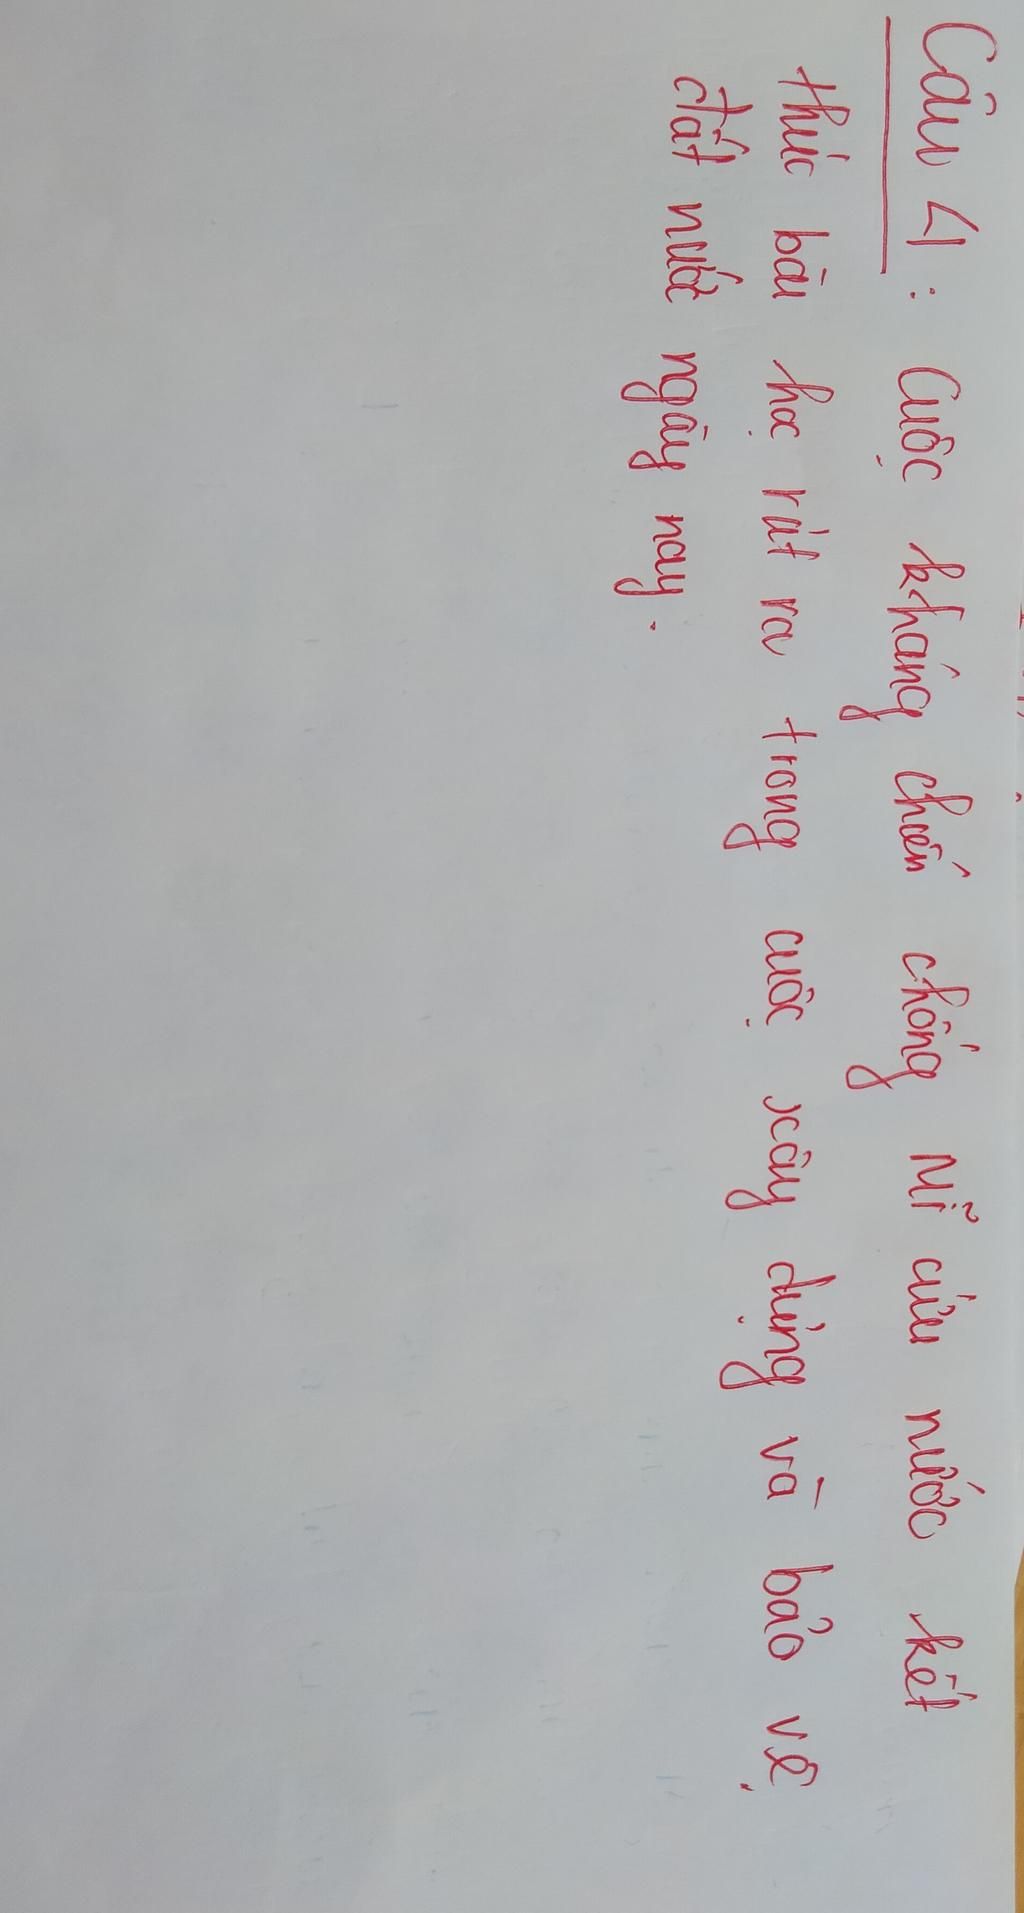 Câu 4: Cuộc kháng chiến chống Mĩ cứu nước kết
thúc bài học rút ra trong cuộc xây dựng và bảo vệ
đất nước ngày nay.